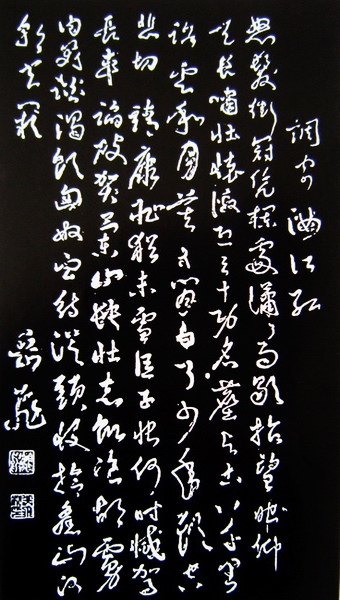 調寄滿江紅
怒髮衝冠憑欄處瀟瀟雨歇抬望眼仰
天長嘯壯懷激烈三十功名塵與土八千里
路雲和月莫等閒白了少年頭空
悲切靖康恥猶未雪臣子恨何時滅駕
長車踏破賀蘭山缺壯志飢餐胡虜
肉笑談渴飲匈奴血待從頭收拾舊山河
朝天闕
岳飛